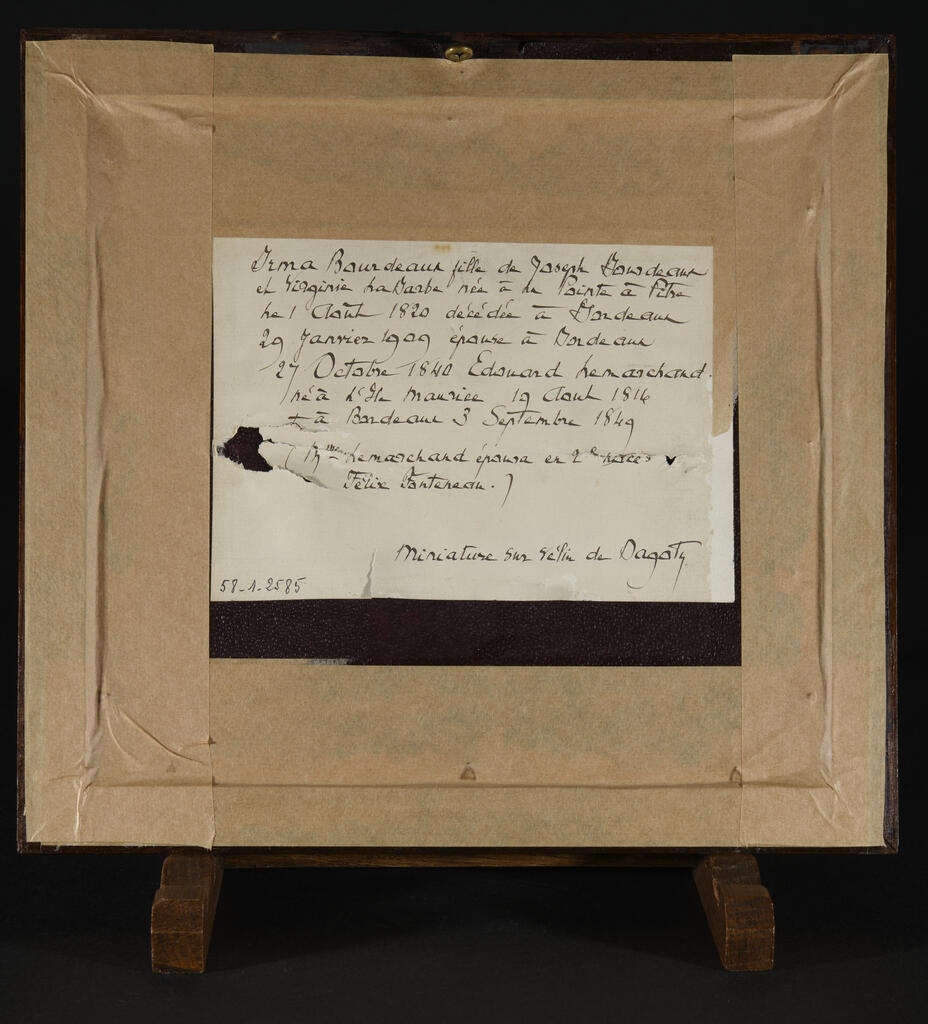 Irma Bourdeaux fille de Joseph Bourdeaux
et Virginie LaBarbe née à la Pointe à Pitre
le 1 Août 1820 décédée à Bordeaux
29 Janvier 1909 épouse à Bordeaux
27 Octobre 1840 Edouard Lemarchand.
né à L'Ile Maurice 19 Aout 1816
+ à Bordeaux 3 Septembre 1849
(Mme Lemarchand épousa en 2e noces
Félix Fonteneau.)
Miniature sur vélin de Dagoty
58-1-2585